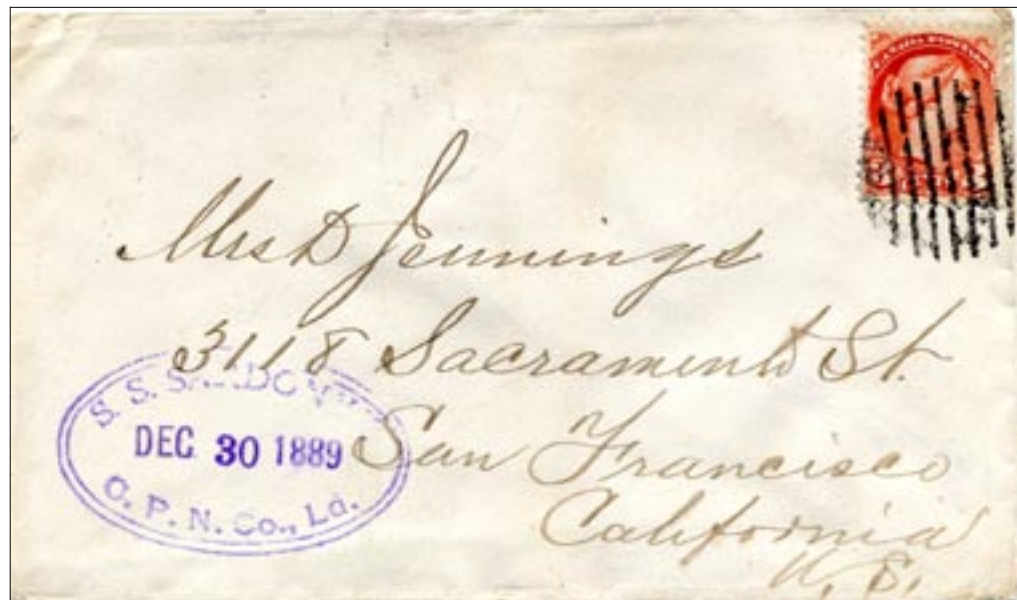 CANADA POSTAGE
Mrs D Jennings
3118 Sacramento St.
San Francisco
California
U. S.
S. S.
DEC 30 1889
C. P. N. Co., Ld.